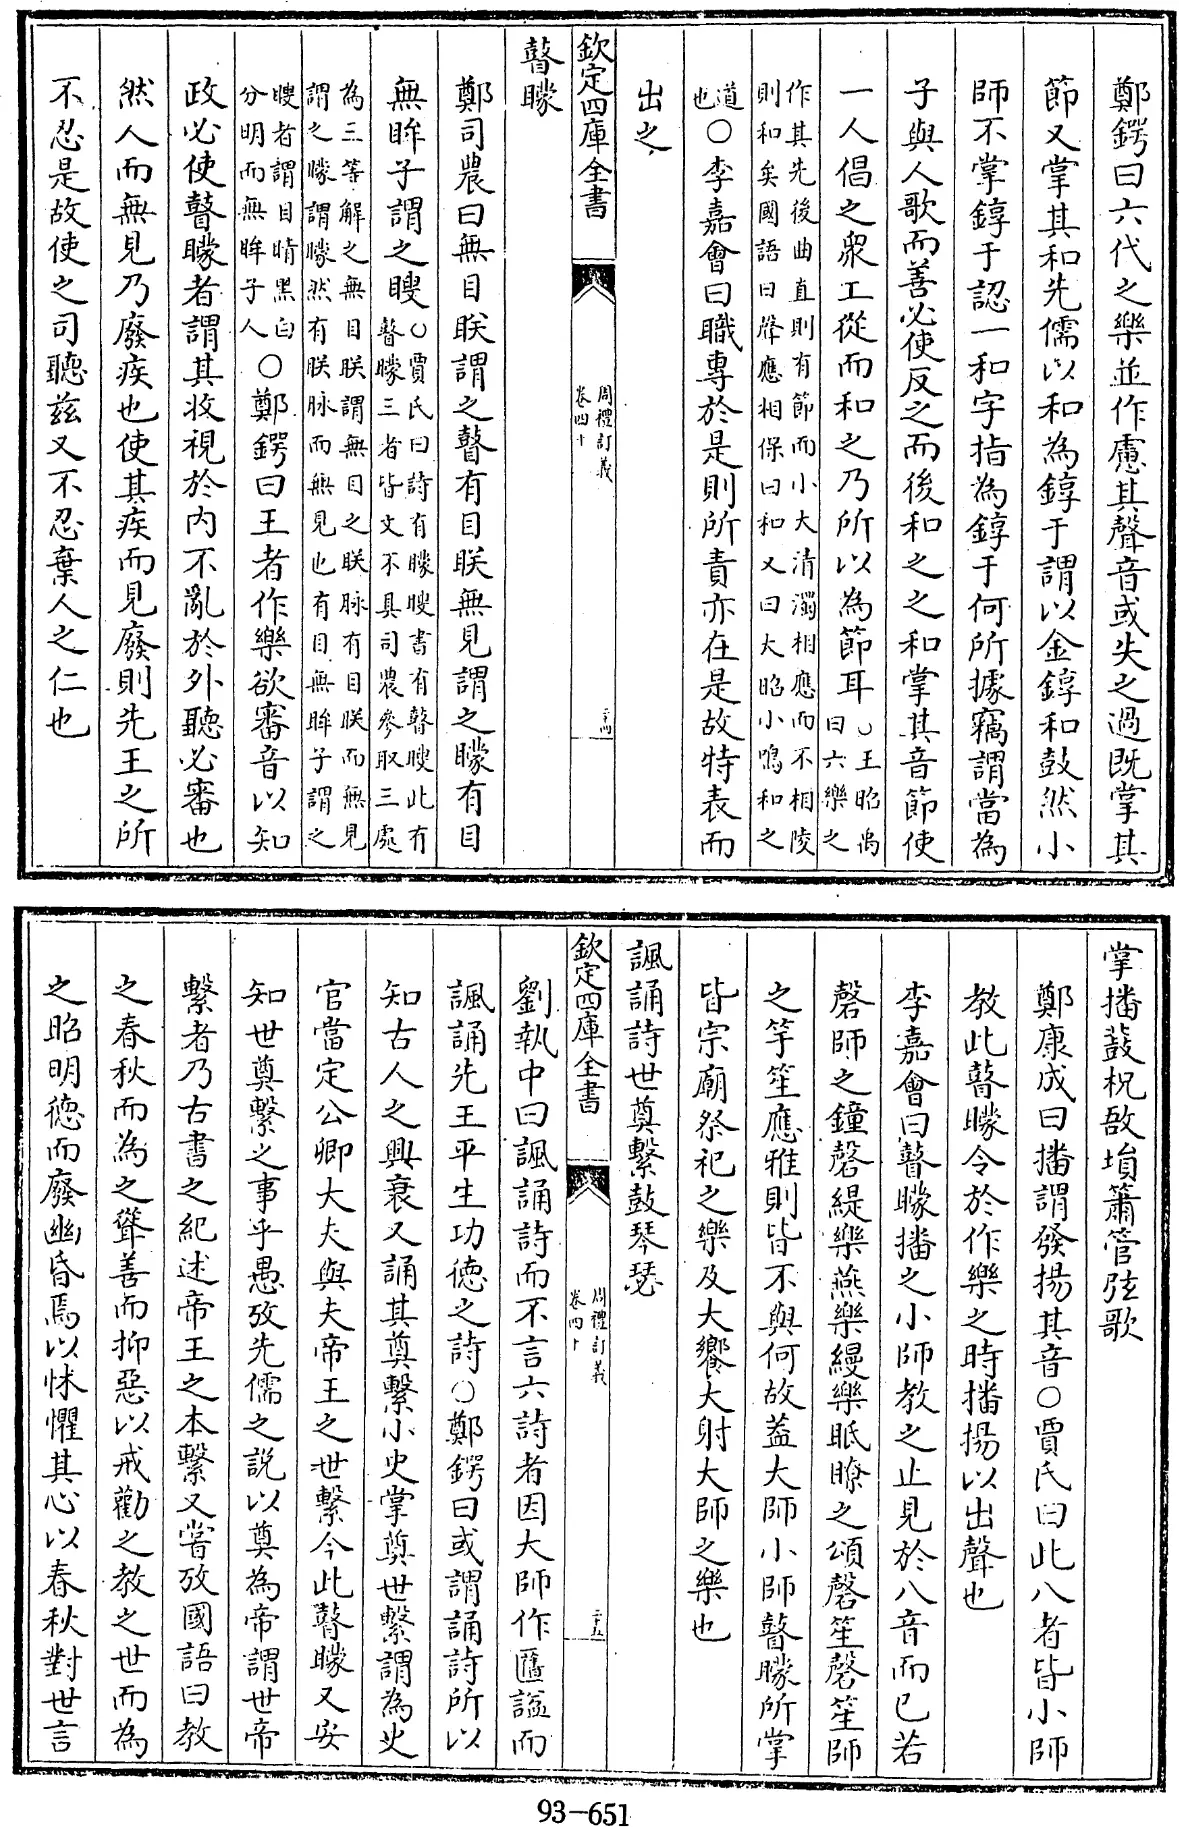 鄭鍔曰六代之樂並作慮其聲音或失之過既掌其
節又掌其和先儒以和為錞于謂以金錞和鼓然小
師不掌錞于認一和字指為錞于何所據竊謂當為
子與人歌而善必使反之而後和之之和掌其音節使
一人倡之衆工從而和之乃所以為節耳○王昭禹曰六樂之
作其先後曲直則有節而小大清濁相應而不相陵
則和矣國語曰聲應相保曰和又曰大昭小鳴和之
道也○李嘉會曰職專於是則所責亦在是故特表而
出之
欽定四庫全書
周禮訂義
卷四十
二十四
瞽矇
鄭司農曰無目眹謂之瞽有目眹無見謂之矇有目
無眸子謂之瞍○賈氏曰詩有矇瞍書有瞽瞍此有瞽矇三者皆文不具司農參取三處
為三等解之無目眹謂無目之眹脉有目眹而無見
謂之矇謂矇然有眹脉而無見也有目無眸子謂之
瞍者謂目睛黑白分明而無眸子人○鄭鍔曰王者作樂欲審音以知
政必使瞽矇者謂其收視於内不亂於外聽必審也
然人而無見乃廢疾也使其疾而見廢則先王之所
不忍是故使之司聽兹又不忍棄人之仁也
掌播鼗柷敔塤簫管弦歌
鄭康成曰播謂發揚其音○賈氏曰此八者皆小師
教此瞽矇令於作樂之時播揚以出聲也
李嘉會曰瞽矇播之小師教之止見於八音而已若
磬師之鐘磬緹樂燕樂縵樂眡瞭之頌磬笙磬笙師
之竽笙應雅則皆不與何故葢大師小師瞽矇所掌
皆宗廟祭祀之樂及大饗大射大師之樂也
諷誦詩世奠繫鼓琴瑟
欽定四庫全書
周禮訂義
卷四十
二十五
劉執中曰諷誦詩而不言六詩者因大師作匶諡而
諷誦先王平生功徳之詩○鄭鍔曰或謂誦詩所以
知古人之興衰又誦其奠繫小史掌奠世繫謂為史
官當定公卿大夫與夫帝王之世繫今此瞽矇又安
知世奠繫之事乎愚攷先儒之説以奠為帝謂世帝
繫者乃古書之紀述帝王之本繫又嘗攷國語曰教
之春秋而為之聳善而抑惡以戒勸之教之世而為
之昭明徳而廢幽昏焉以怵懼其心以春秋對世言
93-651